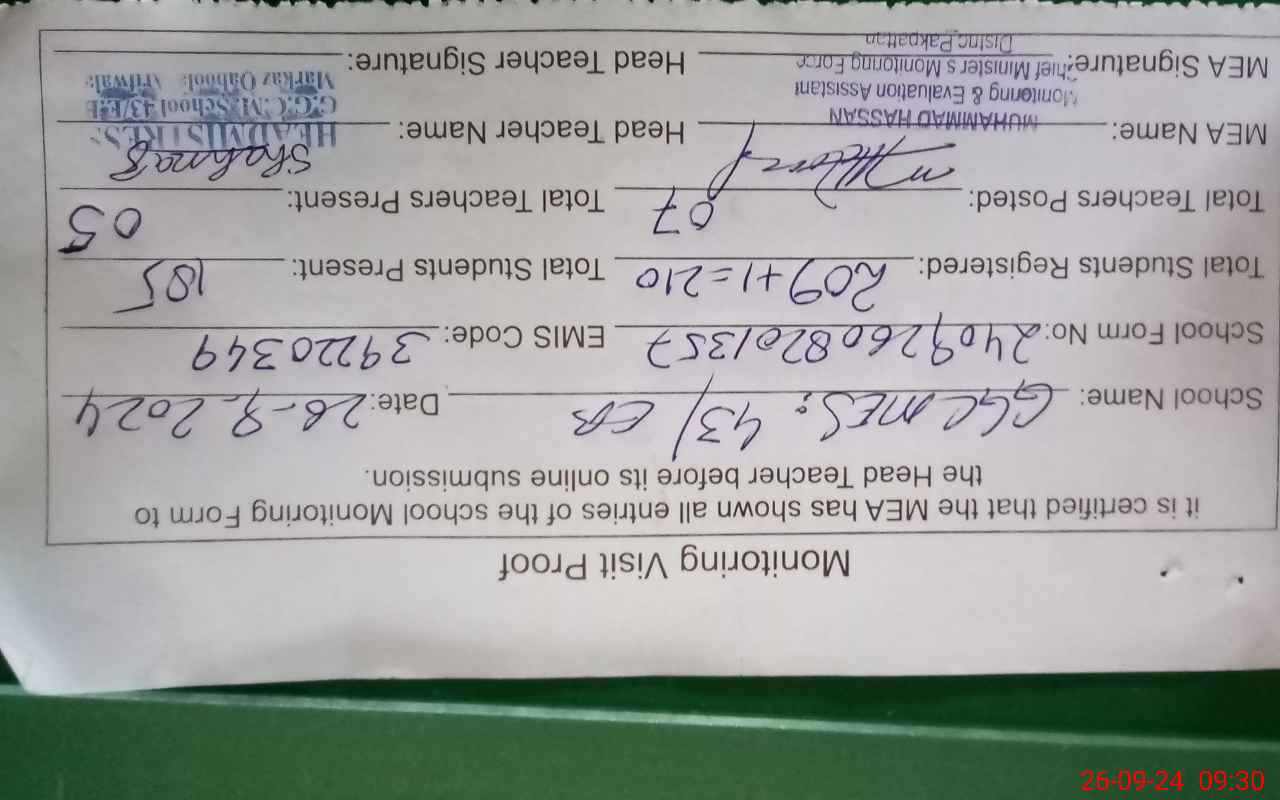 Monitoring Visit Proof
it is certified that the MEA has shown all entries of the school Monitoring Form to
the Head Teacher before its online submission.
School Name: GGCMES: 43/EB Date: 26-9-2024
School Form No: 24092608201357 EMIS Code: 39220349
Total Students Registered: 209+1=210 Total Students Present: 185
Total Teachers Posted: 07 Total Teachers Present: 05
MEA Name: Head Teacher Name: Shahnaz
MUHAMMAD HASSAN HEADMISTRESS
Monitoring & Evaluation Assistant G.G.C.M.School 43/E.B
MEA Signature: Chief Minister's Monitoring Force Head Teacher Signature: Markaz Qaboola Arifwala
Distric Pakpattan
26-09-24 09:30